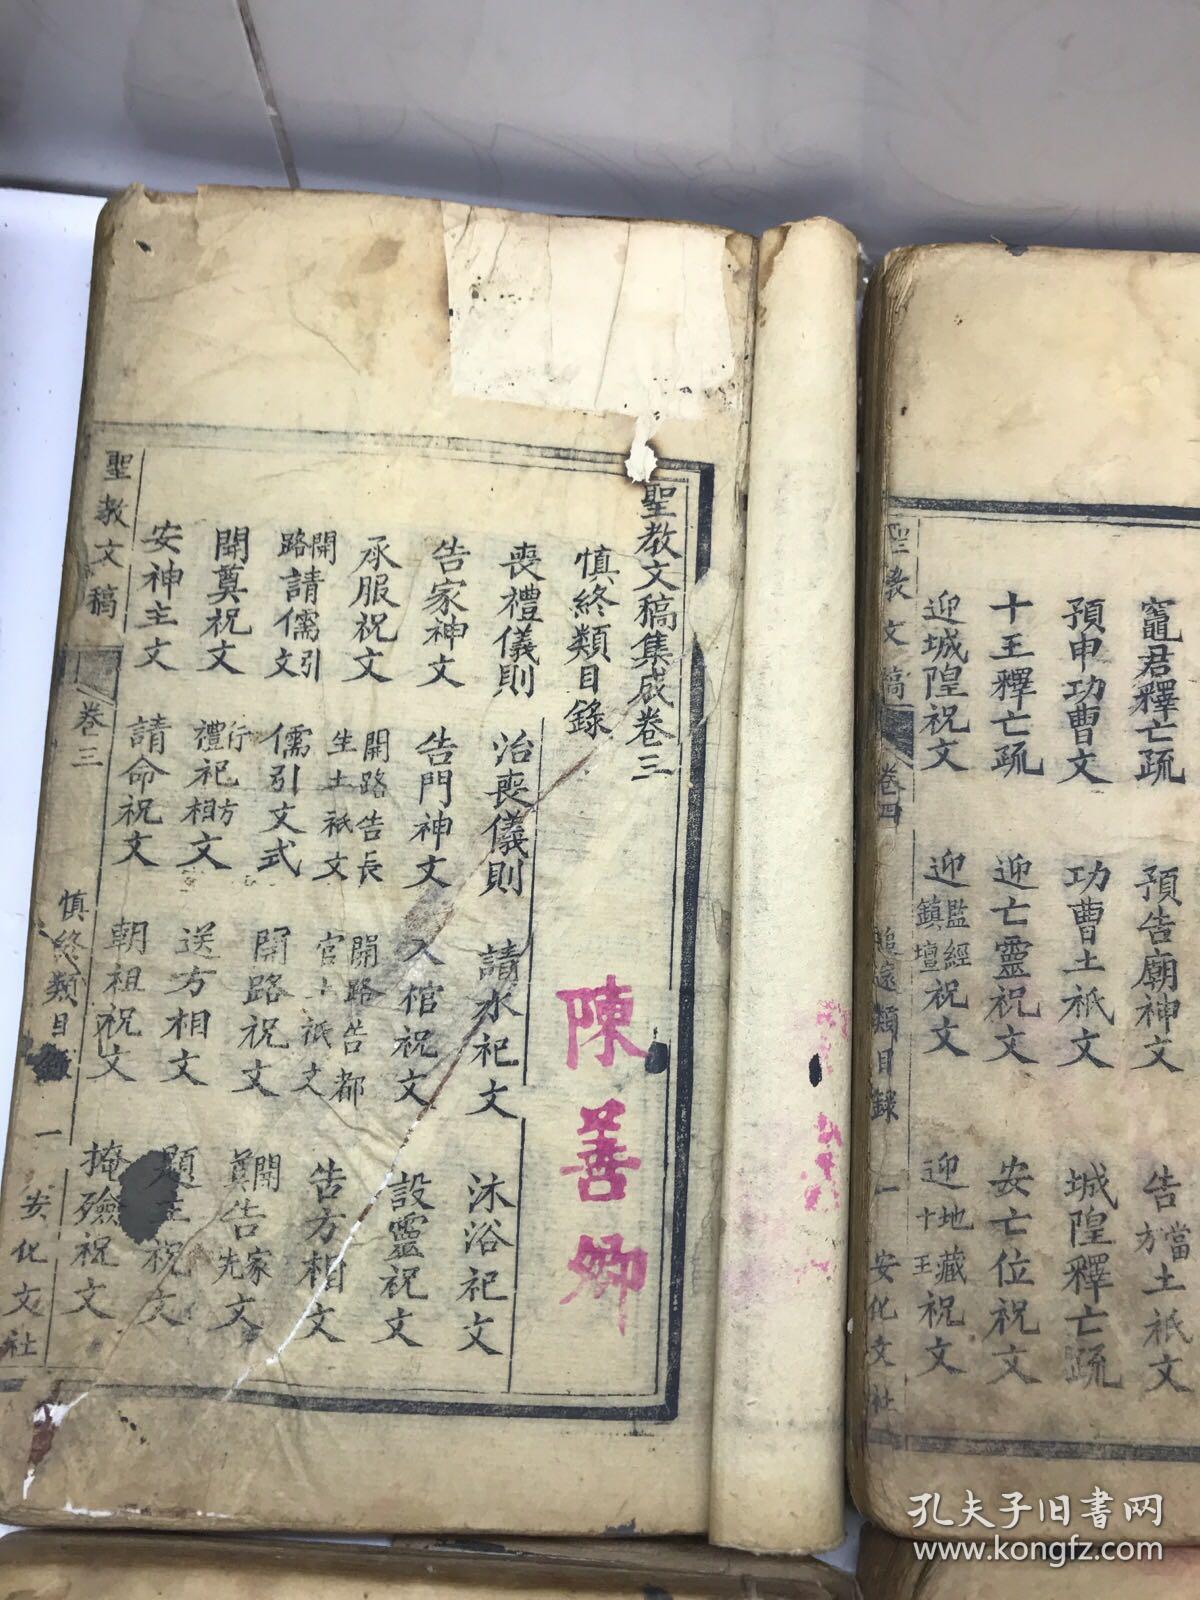 聖教文稿集成卷三
慎終類目錄
喪禮儀則 治喪儀則 請水祀文 沐浴祀文
告家神文 告門神文 入棺祝文 設靈祝文
承服祝文 開路告長生土祇文 開路告都官土祇文 告方相文
開路請儒引文 儒引文式 開路祝文 開奠告家先文
開奠祝文 行禮祀方相文 送方相文 題主祝文
安神主文 請命祝文 朝祖祝文 掩殮祝文
聖教文稿 卷三 慎終類目錄 一 安化文社
陳善卿
竈君釋亡疏 預告廟神文 告當方土祇文
預申功曹文 功曹土祇文 城隍釋亡疏
十王釋亡疏 迎亡靈祝文 安亡位祝文
迎城隍祝文 迎監經鎮壇祝文 迎地藏十王祝文
聖教文稿 卷四 追遠類目錄 一 安化文社
孔夫子旧书网
www.kongfz.com